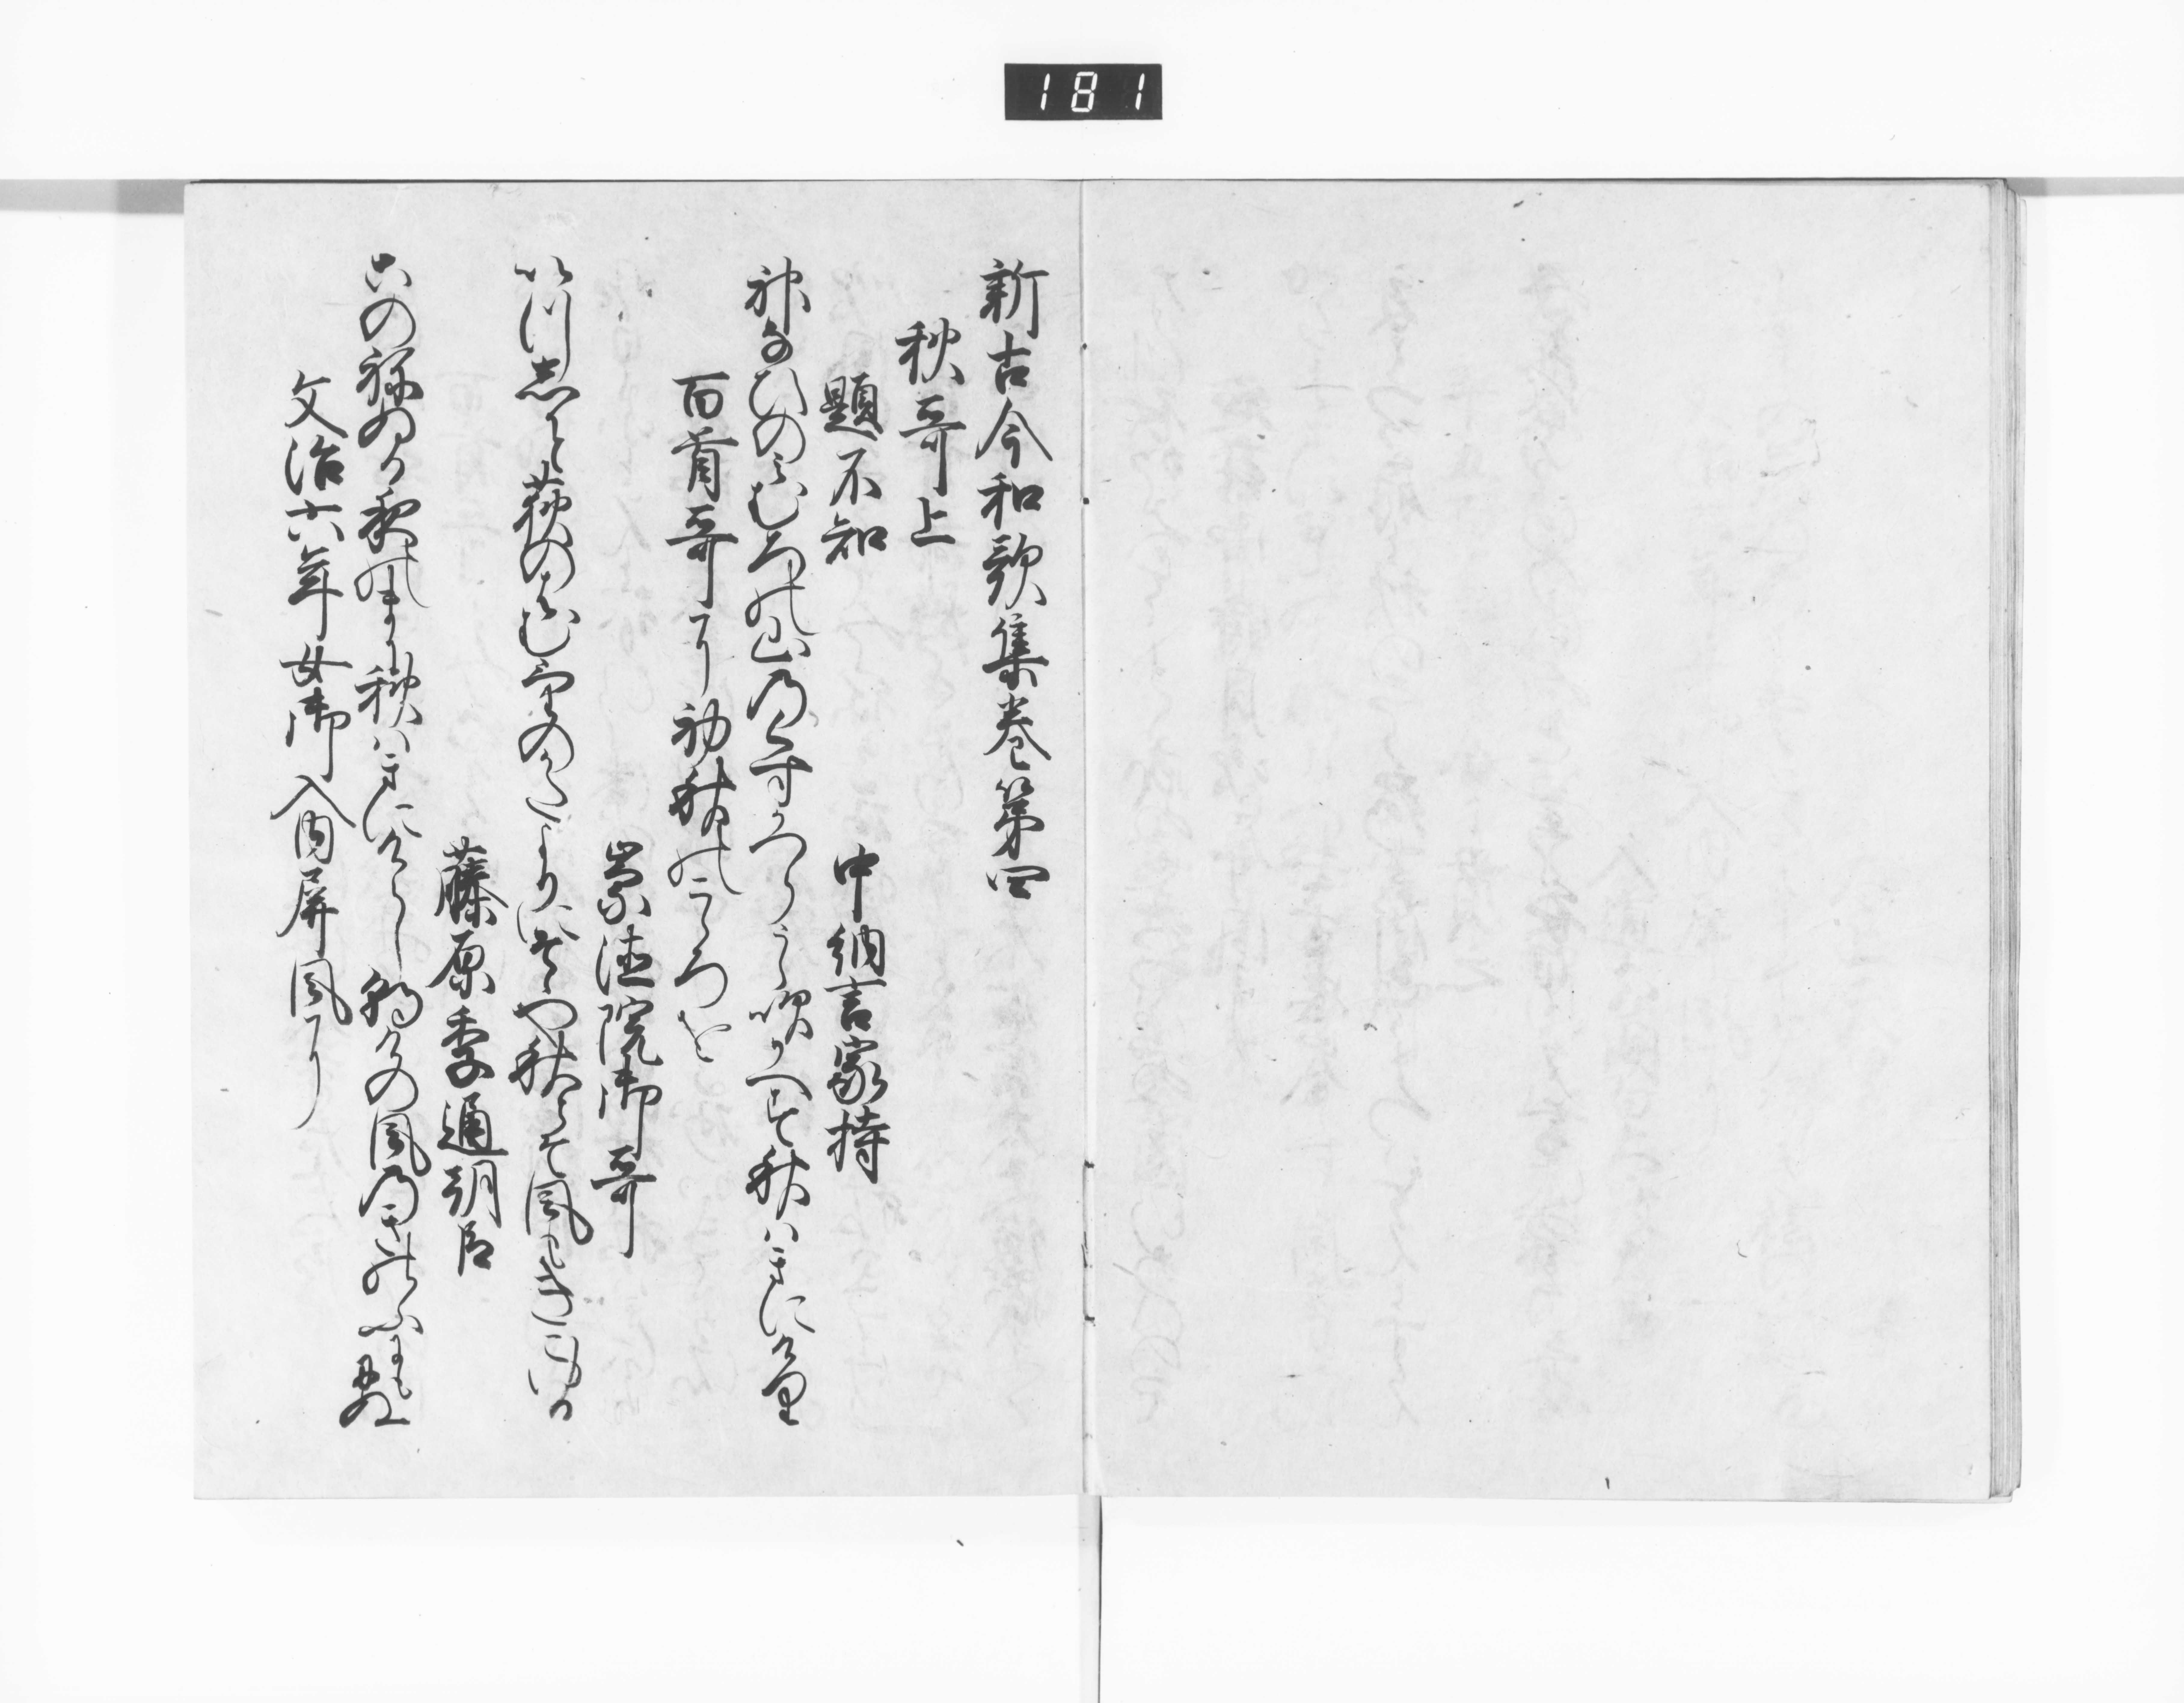 181
新古今和歌集巻第四
秋哥上
題不知 中納言家持
神なひのみむろの山のくすかつらうら吹かへす秋はきにけり
百首哥に初秋のこゝろを
崇徳院御哥
いつしかと荻のはむけのかたよりにそゝや秋とそ風もきこゆる
藤原季通朝臣
このねぬる夜のまに秋はきにけらし朝けの風のきのふにもにぬ
文治六年女御入内屏風に